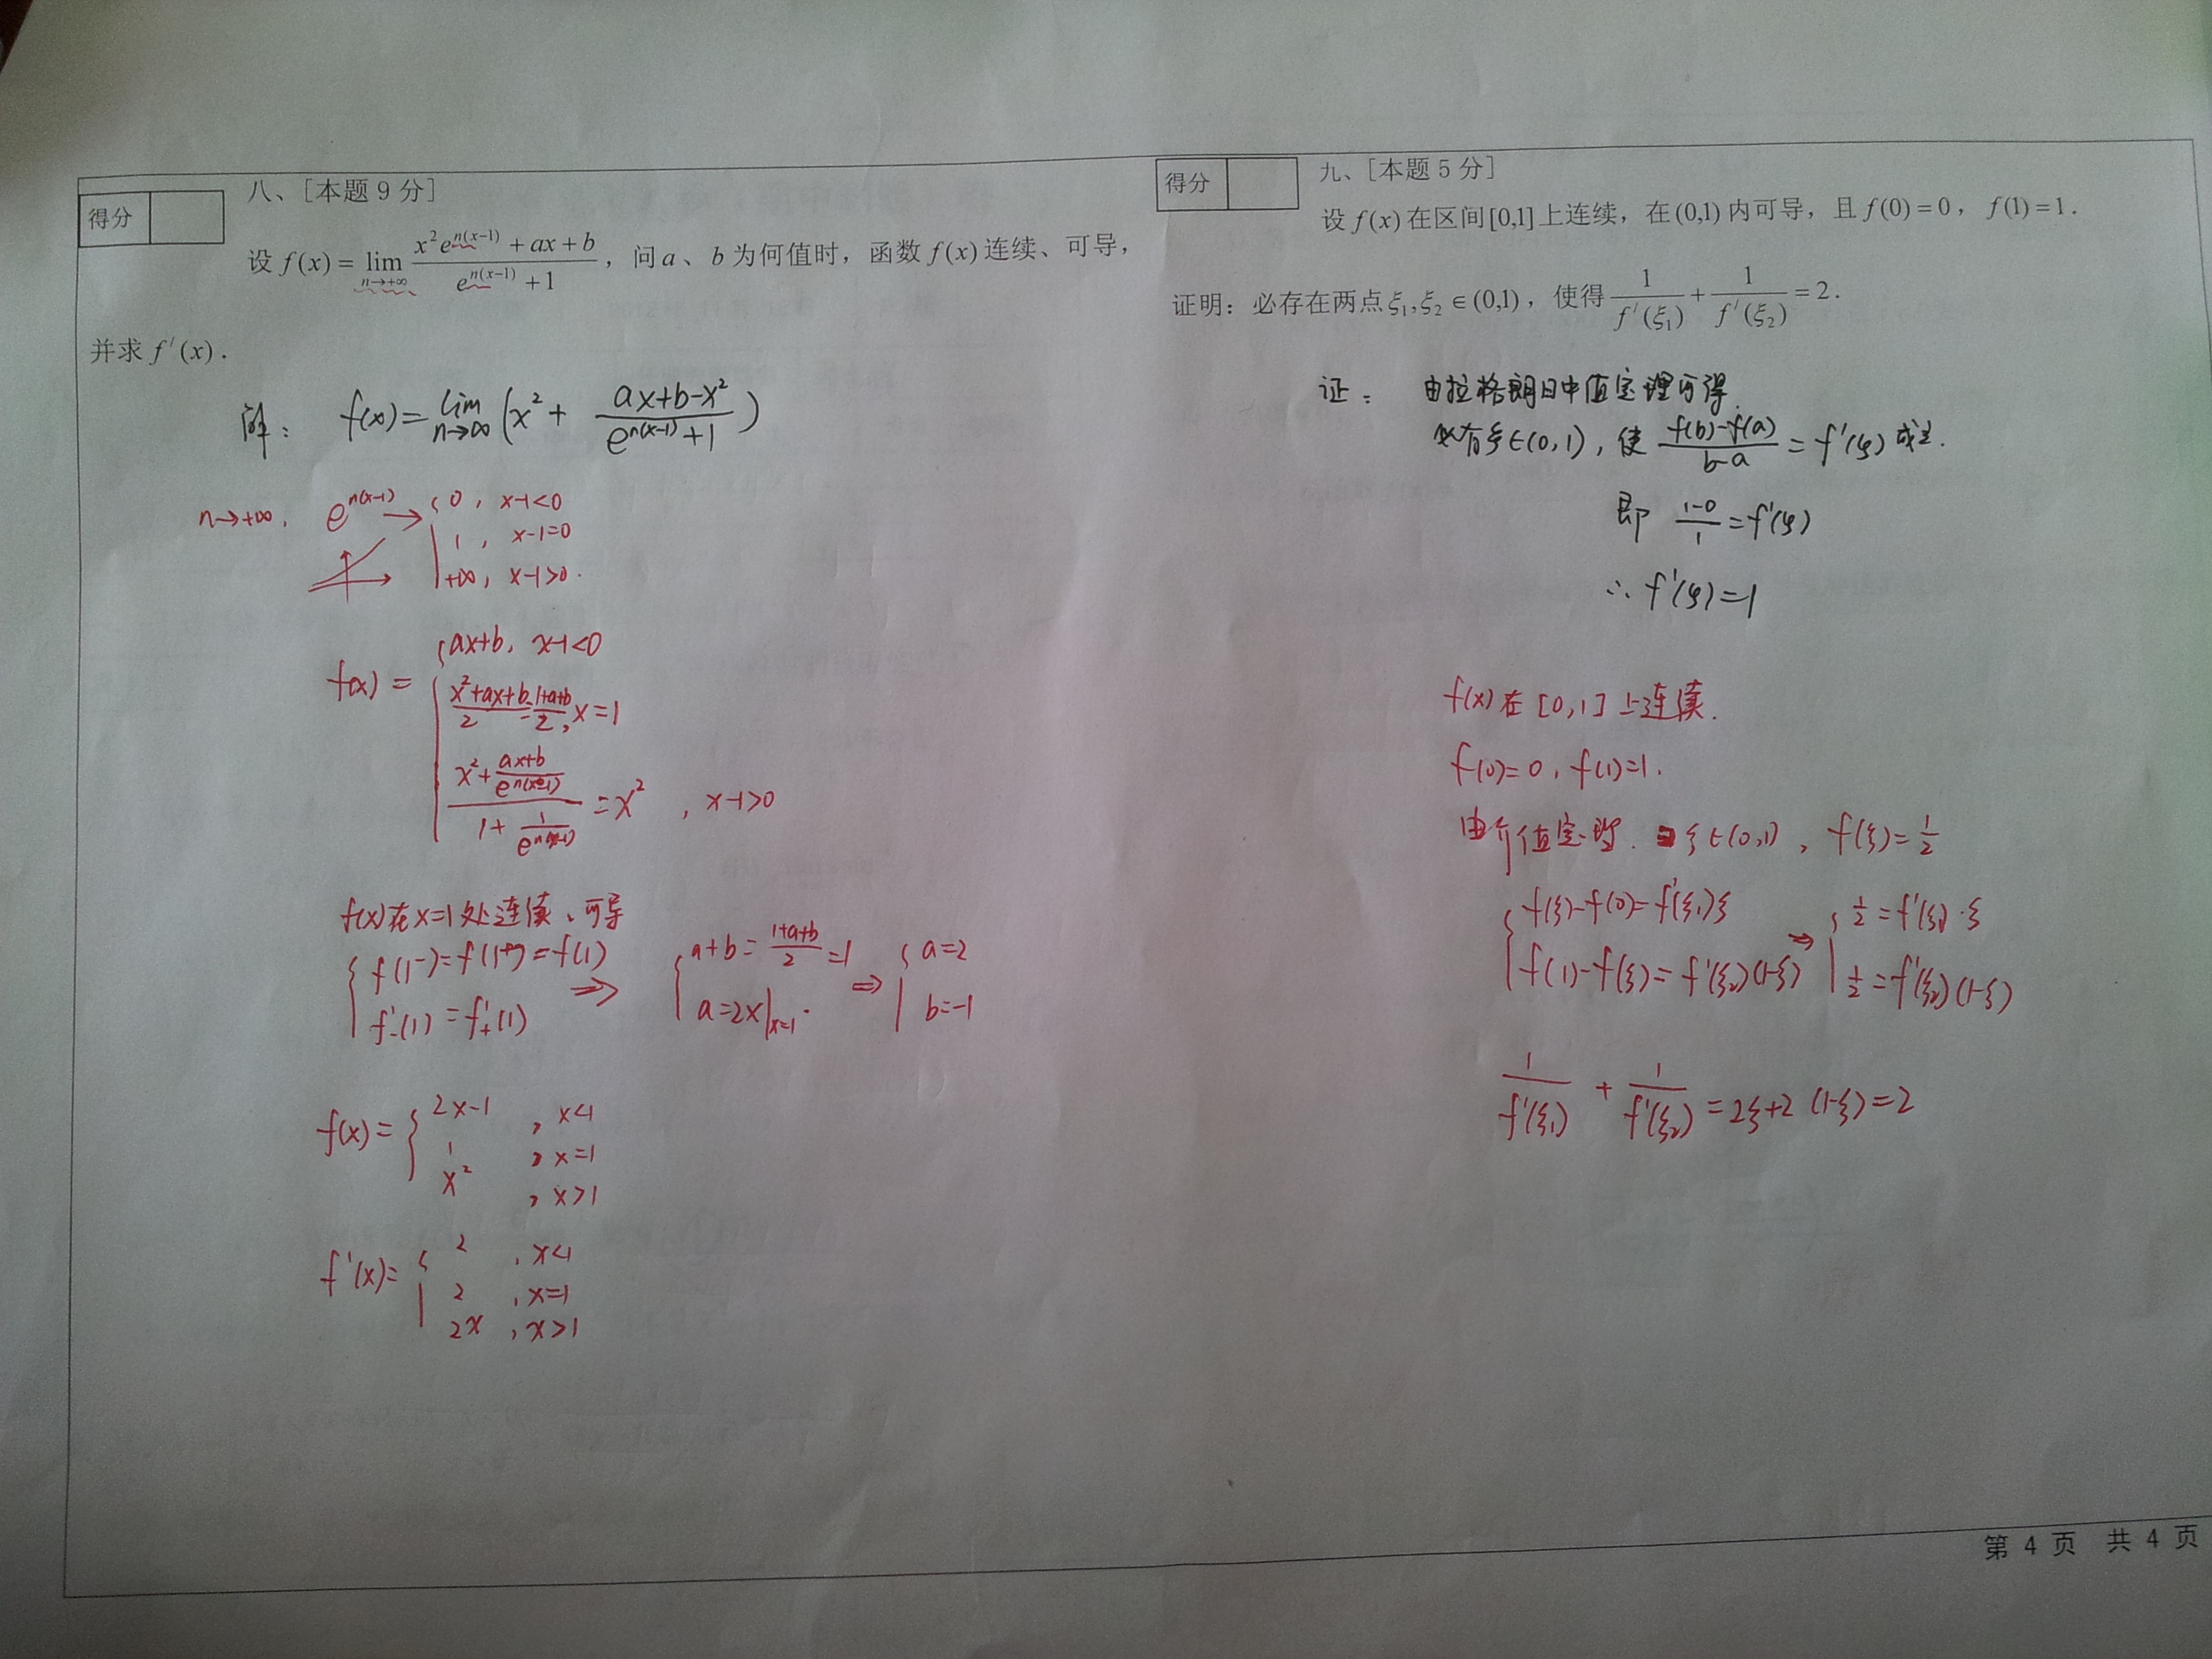 得分
八、[本题 9 分]
设 f(x) = lim_{n→+∞} (x²e^{n(x−1)} + ax + b)/(e^{n(x−1)} + 1)，问 a、b 为何值时，函数 f(x) 连续、可导，
并求 f′(x).
解： f(x) = lim_{n→∞} (x² + (ax+b−x²)/(e^{n(x−1)}+1))
n→+∞, e^{n(x−1)} → { 0, x−1<0
1, x−1=0
+∞, x−1>0.
f(x) = { ax+b, x−1<0
(x²+ax+b)/2 = (1+a+b)/2, x=1
(x² + (ax+b)/e^{n(x−1)})/(1 + 1/e^{n(x−1)}) = x², x−1>0
f(x)在x=1处连续、可导
{ f(1⁻)=f(1⁺)=f(1) ⇒ { a+b = (1+a+b)/2 = 1 ⇒ { a=2
f′₋(1) = f′₊(1) a=2x|_{x=1}. b=−1
f(x) = { 2x−1, x<1
1, x=1
x², x>1
f′(x) = { 2, x<1
2, x=1
2x, x>1
得分
九、[本题 5 分]
设 f(x) 在区间[0,1]上连续，在(0,1)内可导，且 f(0)=0，f(1)=1.
证明：必存在两点 ξ₁,ξ₂∈(0,1)，使得 1/f′(ξ₁) + 1/f′(ξ₂) = 2.
证： 由拉格朗日中值定理可得.
必有ξ∈(0,1)，使 (f(b)−f(a))/(b−a) = f′(ξ) 成立.
即 (1−0)/1 = f′(ξ)
∴ f′(ξ)=1
f(x)在[0,1]上连续.
f(0)=0, f(1)=1.
由介值定理. ξ∈(0,1), f(ξ)=1/2
{ f(ξ)−f(0)=f′(ξ₁)ξ ⇒ { 1/2 = f′(ξ₁)·ξ
f(1)−f(ξ)=f′(ξ₂)(1−ξ) 1/2 = f′(ξ₂)(1−ξ)
1/f′(ξ₁) + 1/f′(ξ₂) = 2ξ+2(1−ξ)=2
第 4 页 共 4 页